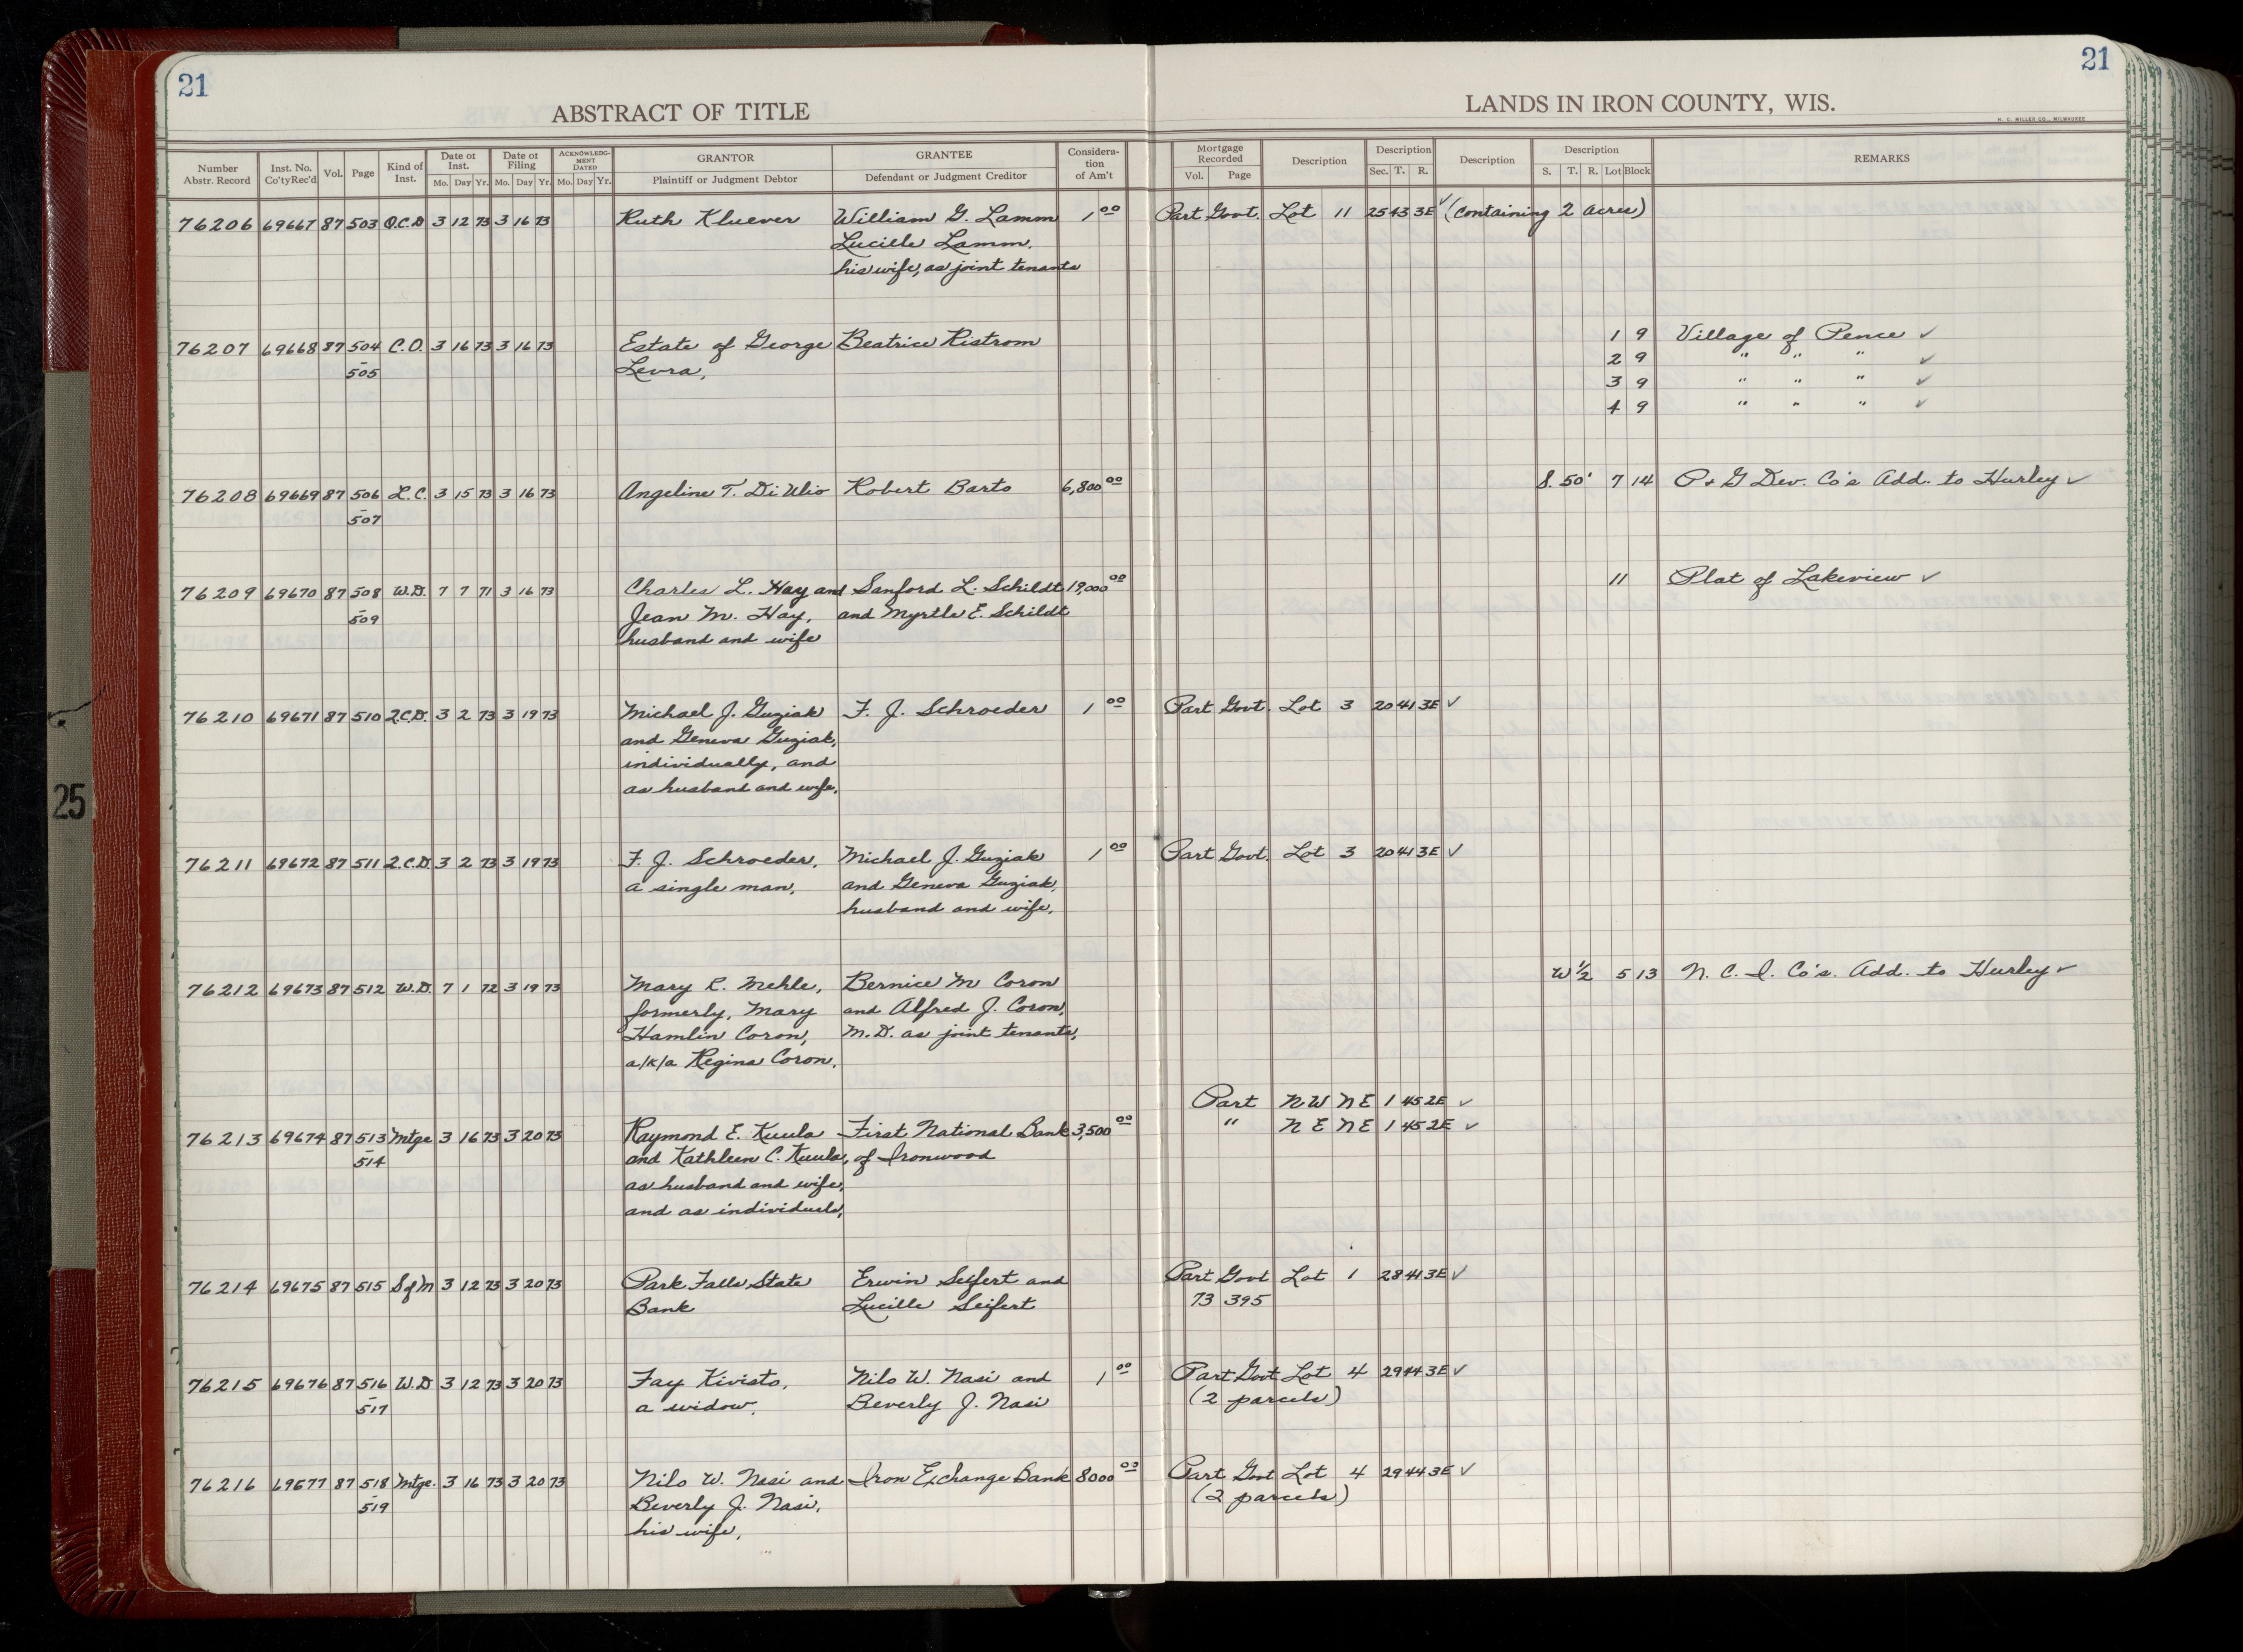 21
21
ABSTRACT OF TITLE
LANDS IN IRON COUNTY, WIS.
H. C. MILLER CO., MILWAUKEE
Number Abstr. Record Inst. No. Co'ty Rec'd Vol. Page Kind of Inst. Date of Inst. Mo. Day Yr. Date of Filing Mo. Day Yr. ACKNOWLEDGMENT DATED Mo. Day Yr. GRANTOR Plaintiff or Judgment Debtor GRANTEE Defendant or Judgment Creditor Consideration of Am't Mortgage Recorded Vol. Page Description Description Sec. T. R. Description Description S. T. R. Lot Block REMARKS
76206 69667 87 503 Q.C.D 3 12 73 3 16 73 Ruth Kluever William G. Lamm 1 00 Part Govt. Lot 11 25 43 3E ✓ (containing 2 acres)
Lucille Lamm,
his wife, as joint tenants
76207 69668 87 504 C.O. 3 16 73 3 16 73 Estate of George Beatrice Ristrom 1 9 Village of Pence ✓
- 505 Levra, 2 9 " " " ✓
3 9 " " " ✓
4 9 " " " ✓
76208 69669 87 506 L.C. 3 15 73 3 16 73 Angeline T. Di Ulio Robert Barto 6,800 00 S. 50' 7 14 P & G Dev. Co's Add. to Hurley ✓
- 507
76209 69670 87 508 W.D. 7 7 71 3 16 73 Charles L. Hay and Sanford L. Schildt 19,000 00 11 Plat of Lakeview ✓
- 509 Jean M. Hay, and Myrtle E. Schildt
husband and wife
76210 69671 87 510 Q.C.D. 3 2 73 3 19 73 Michael J. Guziak F. J. Schroeder 1 00 Part Govt. Lot 3 20 41 3E ✓
and Geneva Guziak,
individually, and
as husband and wife,
76211 69672 87 511 Q.C.D. 3 2 73 3 19 73 F. J. Schroeder, Michael J. Guziak 1 00 Part Govt. Lot 3 20 41 3E ✓
a single man, and Geneva Guziak,
husband and wife,
76212 69673 87 512 W.D. 7 1 72 3 19 73 Mary R. Mehle, Bernice M Coron W 1/2 5 13 N. C. I. Co's. Add. to Hurley ✓
formerly, Mary and Alfred J. Coron,
Hamlin Coron, M.D. as joint tenants,
a/k/a Regina Coron,
Part NW NE 1 45 2E ✓
76213 69674 87 513 Mtge 3 16 73 3 20 73 Raymond E. Kuula First National Bank 3,500 00 " NE NE 1 45 2E ✓
- 514 and Kathleen C. Kuula, of Ironwood
as husband and wife,
and as individuals,
76214 69675 87 515 S of M 3 12 73 3 20 73 Park Falls State Erwin Seifert and Part Govt Lot 1 28 41 3E ✓
Bank Lucille Seifert 73 395
76215 69676 87 516 W.D 3 12 73 3 20 73 Fay Kivisto, Nilo W. Nasi and 1 00 Part Govt Lot 4 29 44 3E ✓
- 517 a widow, Beverly J. Nasi (2 parcels)
76216 69677 87 518 Mtge. 3 16 73 3 20 73 Nilo W. Nasi and Iron Exchange Bank 8000 03 Part Govt Lot 4 29 44 3E ✓
- 519 Beverly J. Nasi, (2 parcels)
his wife,
25